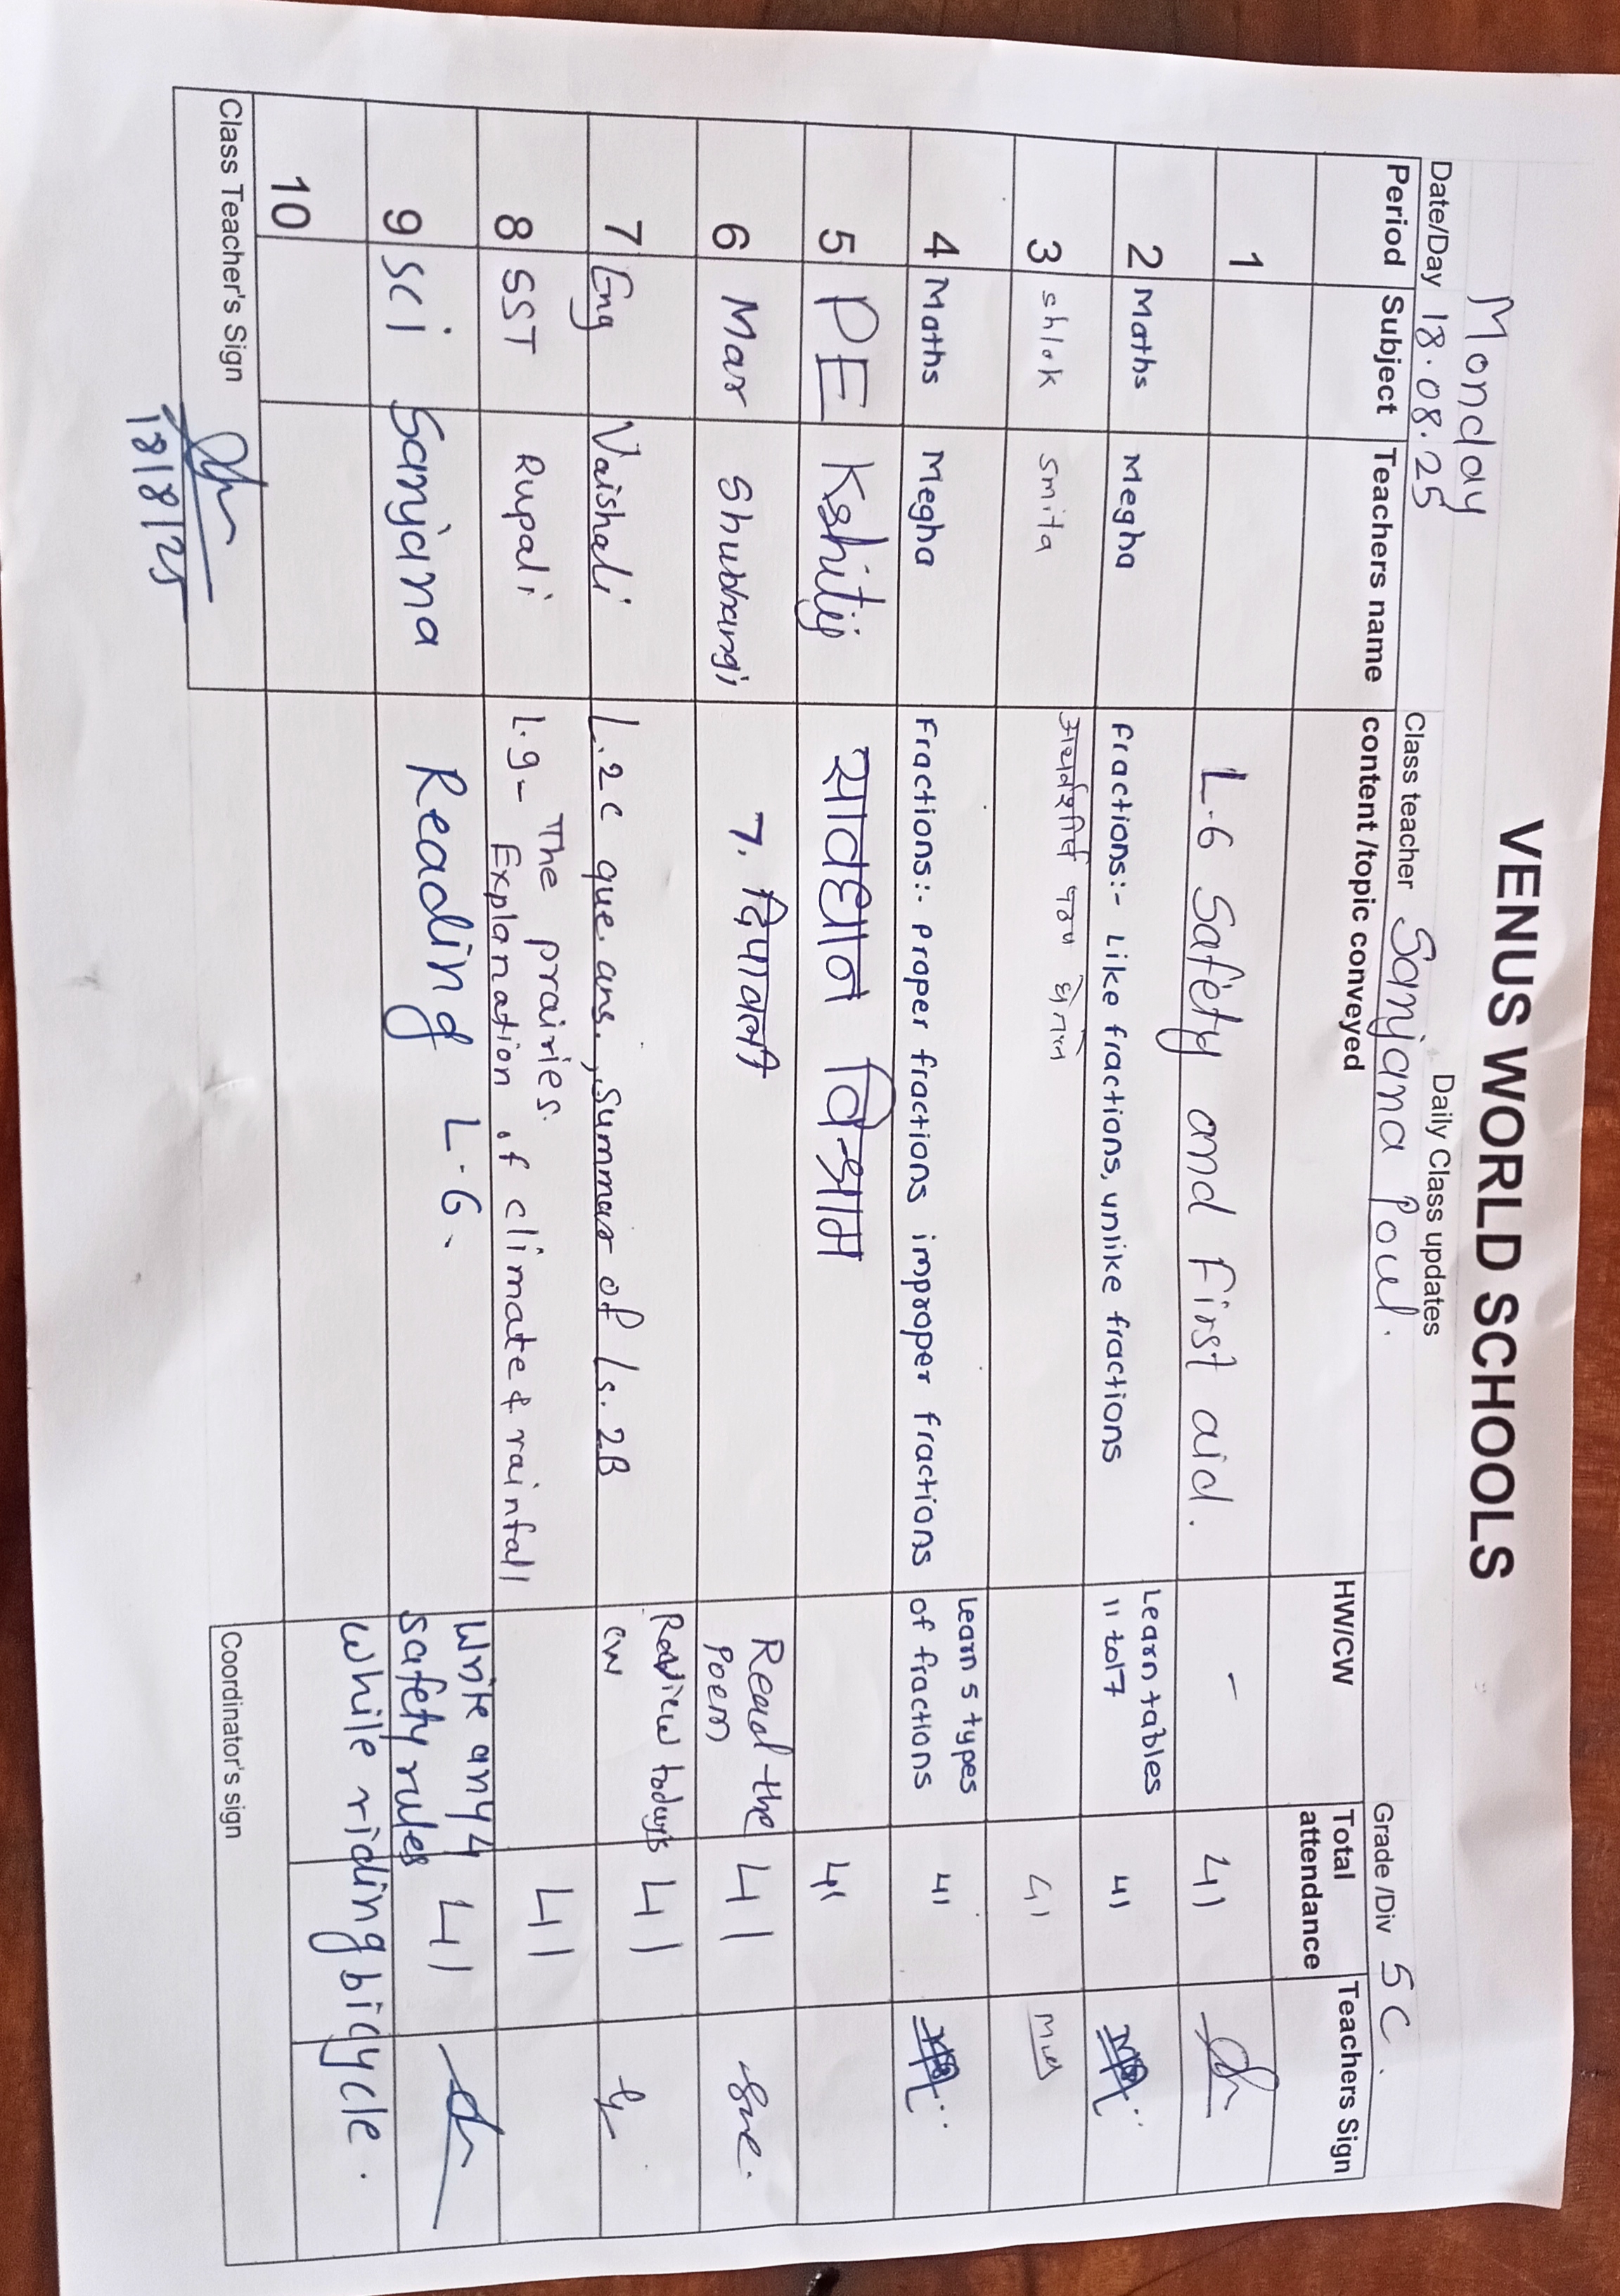 VENUS WORLD SCHOOLS
Monday
Daily Class updates
Date/Day 18.08.25 Class teacher Sanjana Poul. Grade /Div 5 C.
Period Subject Teachers name content /topic conveyed HW/CW Total attendance Teachers Sign
1 L.6 Safety and First aid. - 41
2 Maths Megha fractions:- Like fractions, unlike fractions Learn tables 11 to 17 41
3 shlok smita अथर्वशीर्ष पठण घेतले 41
4 Maths Megha Fractions:- Proper fractions improper fractions Learn 5 types of fractions 41
5 PE Kshitij सावधान विश्राम 41
6 Mar Shubhangi 7. दिपावली Read the Poem 41
7 Eng Vaishali L.2c que. ans., Summar of Ls. 2B Review today's CW 41
8 SST Rupali L.9- The prairies.
Explanation of climate & rainfall 41
9 Sci Sanjana Reading L.6. Write any 4 safety rules while riding bicycle. 41
10
Class Teacher's Sign Coordinator's sign
18/8/25